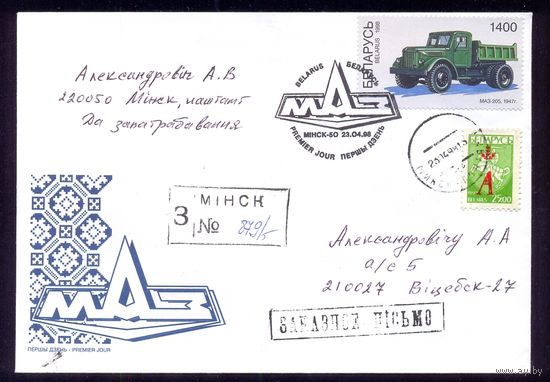 Александровіч А.В
220050 Мінск, паштамт
Да запатрабавання
BELARUS БЕЛАРУСЬ
МАЗ
МІНСК-50 23.04.98
PREMIER JOUR ПЕРШЫ ДЗЕНЬ
БЕЛАРУСЬ
BELARUS 1998
1400
МАЗ-205, 1947г.
БЕЛАРУСЬ
А
BELARUS
2200
МІНСК
З
№ 879/5
Александровічу А.А
а/с 5
210027 Віцебск-27
ЗАКАЗНОЕ ПІСЬМО
МАЗ
ПЕРШЫ ДЗЕНЬ - PREMIER JOUR
www.au.by